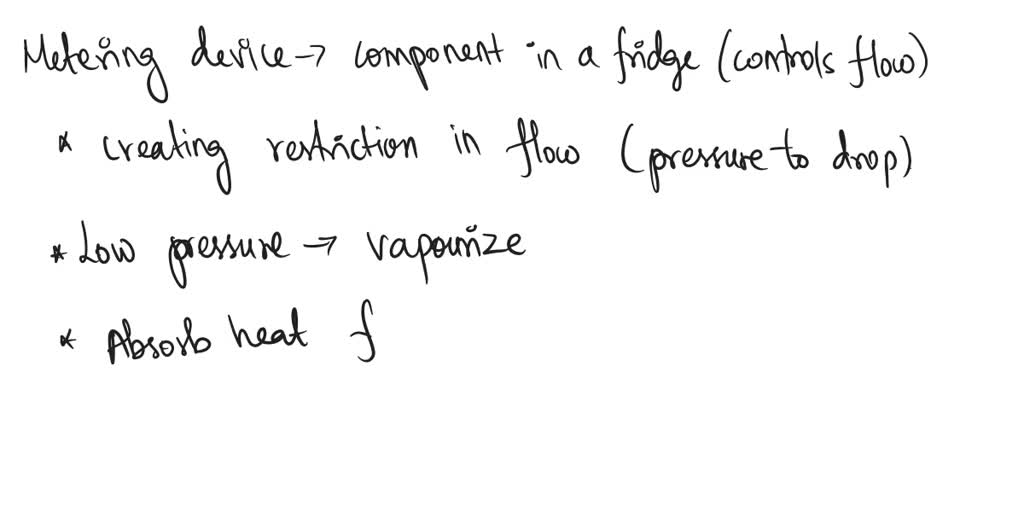 Metering device → component in a fridge (controls flow)
* creating restriction in flow (pressure to drop)
* Low pressure → vapourize
* Absorb heat f